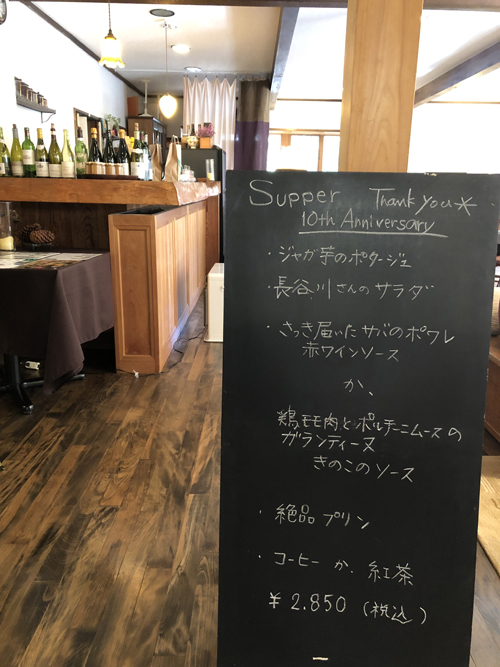 Supper Thank you*
10th Anniversary
・ジャガ芋のポタージュ
・長谷川さんのサラダ
・さっき届いたサバのポワレ
赤ワインソース
か、
鶏モモ肉とポルチーニムースの
ガランティーヌ
きのこのソース
・絶品プリン
・コーヒー か、紅茶
¥2.850 (税込)